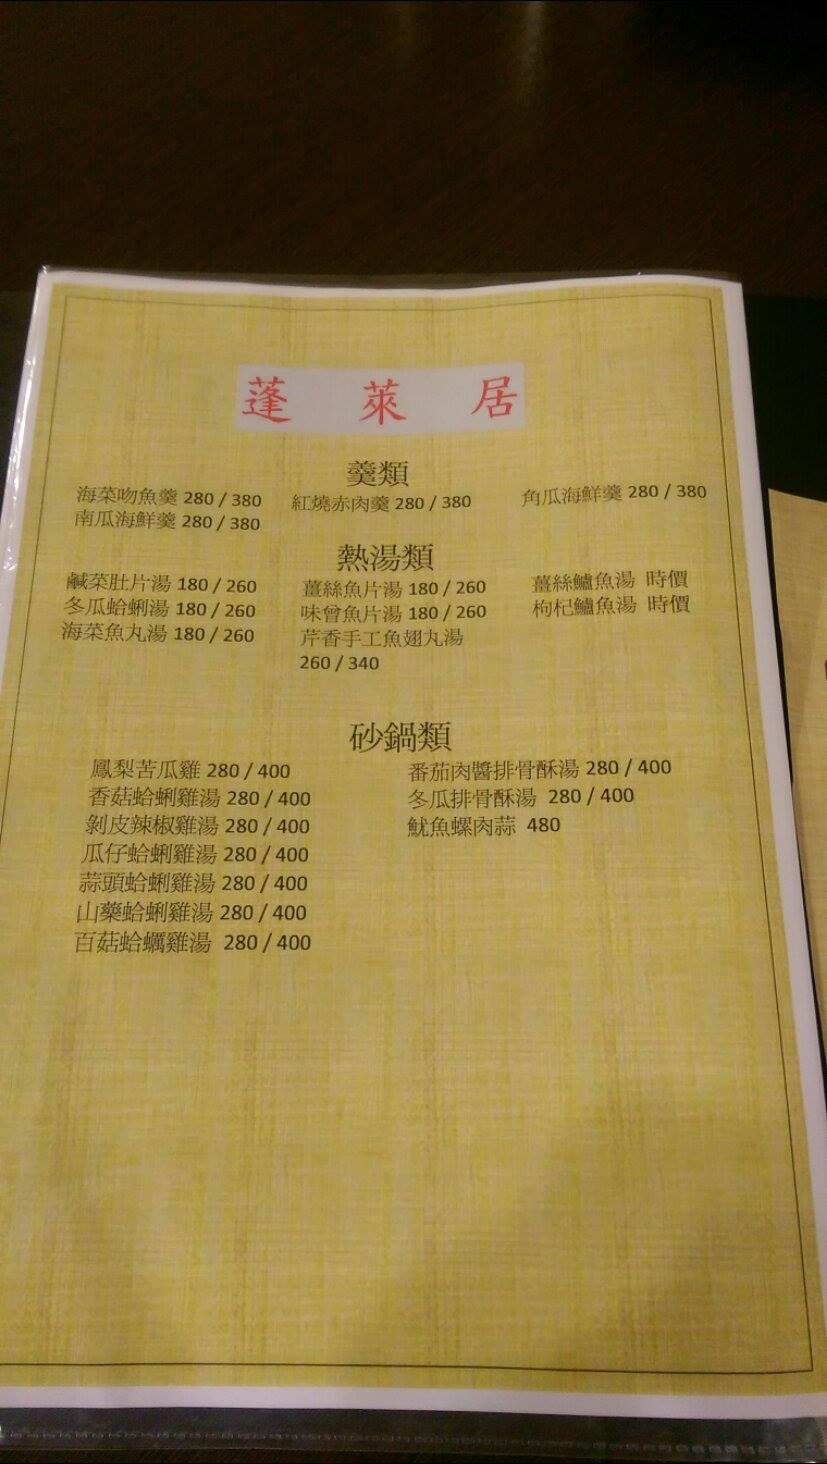 蓬萊居
羹類
海菜吻魚羹 280 / 380 紅燒赤肉羹 280 / 380 角瓜海鮮羹 280 / 380
南瓜海鮮羹 280 / 380
熱湯類
鹹菜肚片湯 180 / 260 薑絲魚片湯 180 / 260 薑絲鱸魚湯 時價
冬瓜蛤蜊湯 180 / 260 味曾魚片湯 180 / 260 枸杞鱸魚湯 時價
海菜魚丸湯 180 / 260 芹香手工魚翅丸湯
260 / 340
砂鍋類
鳳梨苦瓜雞 280 / 400 番茄肉醬排骨酥湯 280 / 400
香菇蛤蜊雞湯 280 / 400 冬瓜排骨酥湯 280 / 400
剝皮辣椒雞湯 280 / 400 魷魚螺肉蒜 480
瓜仔蛤蜊雞湯 280 / 400
蒜頭蛤蜊雞湯 280 / 400
山藥蛤蜊雞湯 280 / 400
百菇蛤蠣雞湯 280 / 400